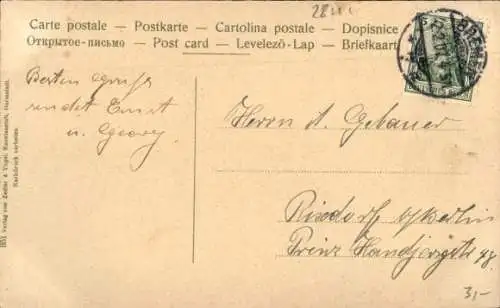 Carte postale — Postkarte — Cartolina postale — Dopisnice
Открытое-письмо — Post card — Levelezö-Lap — Briefkaart
Besten Gruß
sendet Ernst
u. Georg
Herrn A. Gebauer
Rixdorf b/Berlin
Prinz Handjerystr 48
3,-
Verlag von Zedler & Vogel, Kunstanstalt, Darmstadt.
Nachdruck verboten.